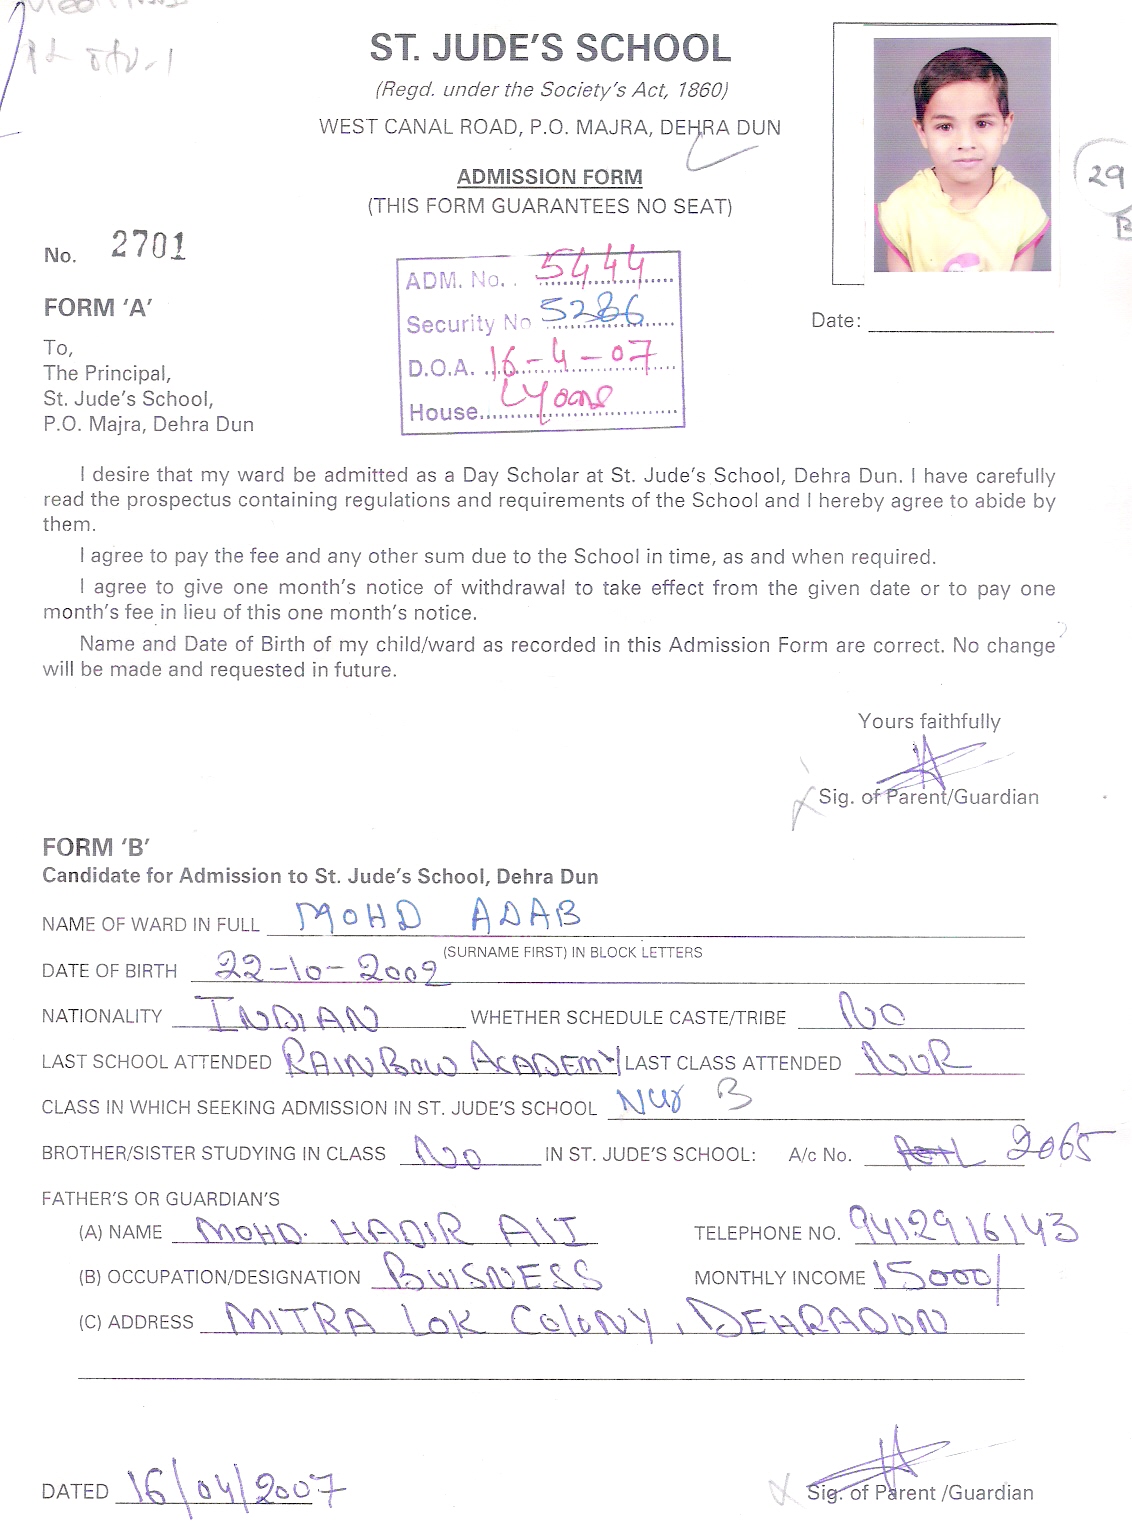 ST. JUDE'S SCHOOL
(Regd. under the Society's Act, 1860)
WEST CANAL ROAD, P.O. MAJRA, DEHRA DUN
ADMISSION FORM
(THIS FORM GUARANTEES NO SEAT)
29
B
No. 2701
ADM. No. 5444
Security No 5286
D.O.A. 16-4-07
House
FORM 'A'
Date:
To,
The Principal,
St. Jude's School,
P.O. Majra, Dehra Dun
I desire that my ward be admitted as a Day Scholar at St. Jude's School, Dehra Dun. I have carefully
read the prospectus containing regulations and requirements of the School and I hereby agree to abide by
them.
I agree to pay the fee and any other sum due to the School in time, as and when required.
I agree to give one month's notice of withdrawal to take effect from the given date or to pay one
month's fee in lieu of this one month's notice.
Name and Date of Birth of my child/ward as recorded in this Admission Form are correct. No change
will be made and requested in future.
Yours faithfully
Sig. of Parent/Guardian
FORM 'B'
Candidate for Admission to St. Jude's School, Dehra Dun
NAME OF WARD IN FULL MOHD ADAB
(SURNAME FIRST) IN BLOCK LETTERS
DATE OF BIRTH 22-10-2002
NATIONALITY INDIAN WHETHER SCHEDULE CASTE/TRIBE NO
LAST SCHOOL ATTENDED RAINBOW ACADEMY LAST CLASS ATTENDED NUR
CLASS IN WHICH SEEKING ADMISSION IN ST. JUDE'S SCHOOL Nur B
BROTHER/SISTER STUDYING IN CLASS No IN ST. JUDE'S SCHOOL: A/c No. 2065
FATHER'S OR GUARDIAN'S
(A) NAME MOHD. HADIR ALI TELEPHONE NO. 9412916143
(B) OCCUPATION/DESIGNATION BUISNESS MONTHLY INCOME 15000/
(C) ADDRESS MITRA LOK COLONY, DEHRADUN
DATED 16/04/2007
Sig. of Parent /Guardian